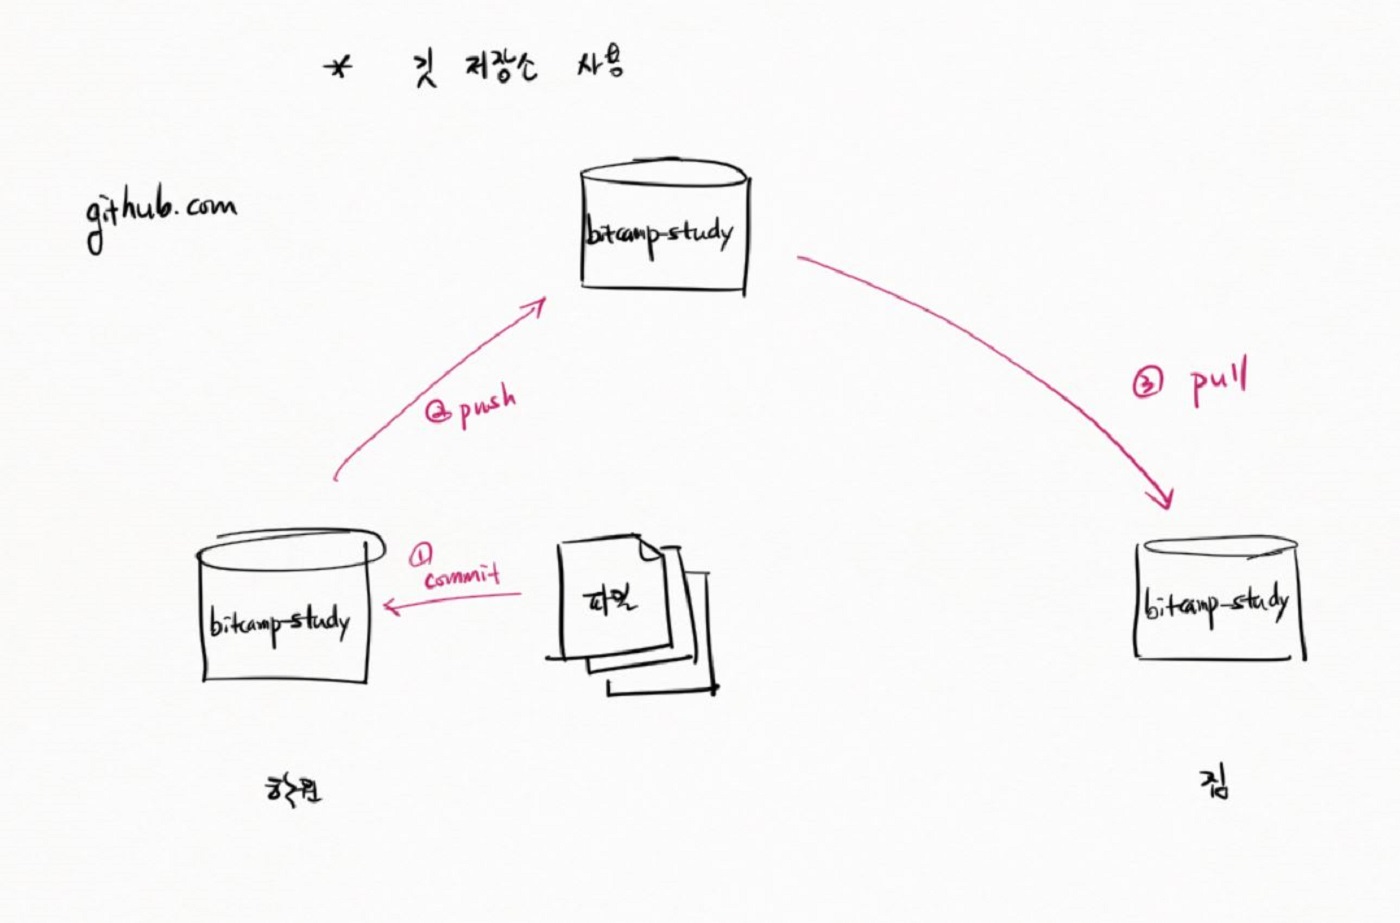 * 깃 저장소 사용
github.com
bitcamp-study
② push
③ pull
① commit
bitcamp-study
파일
bitcamp-study
학원
집